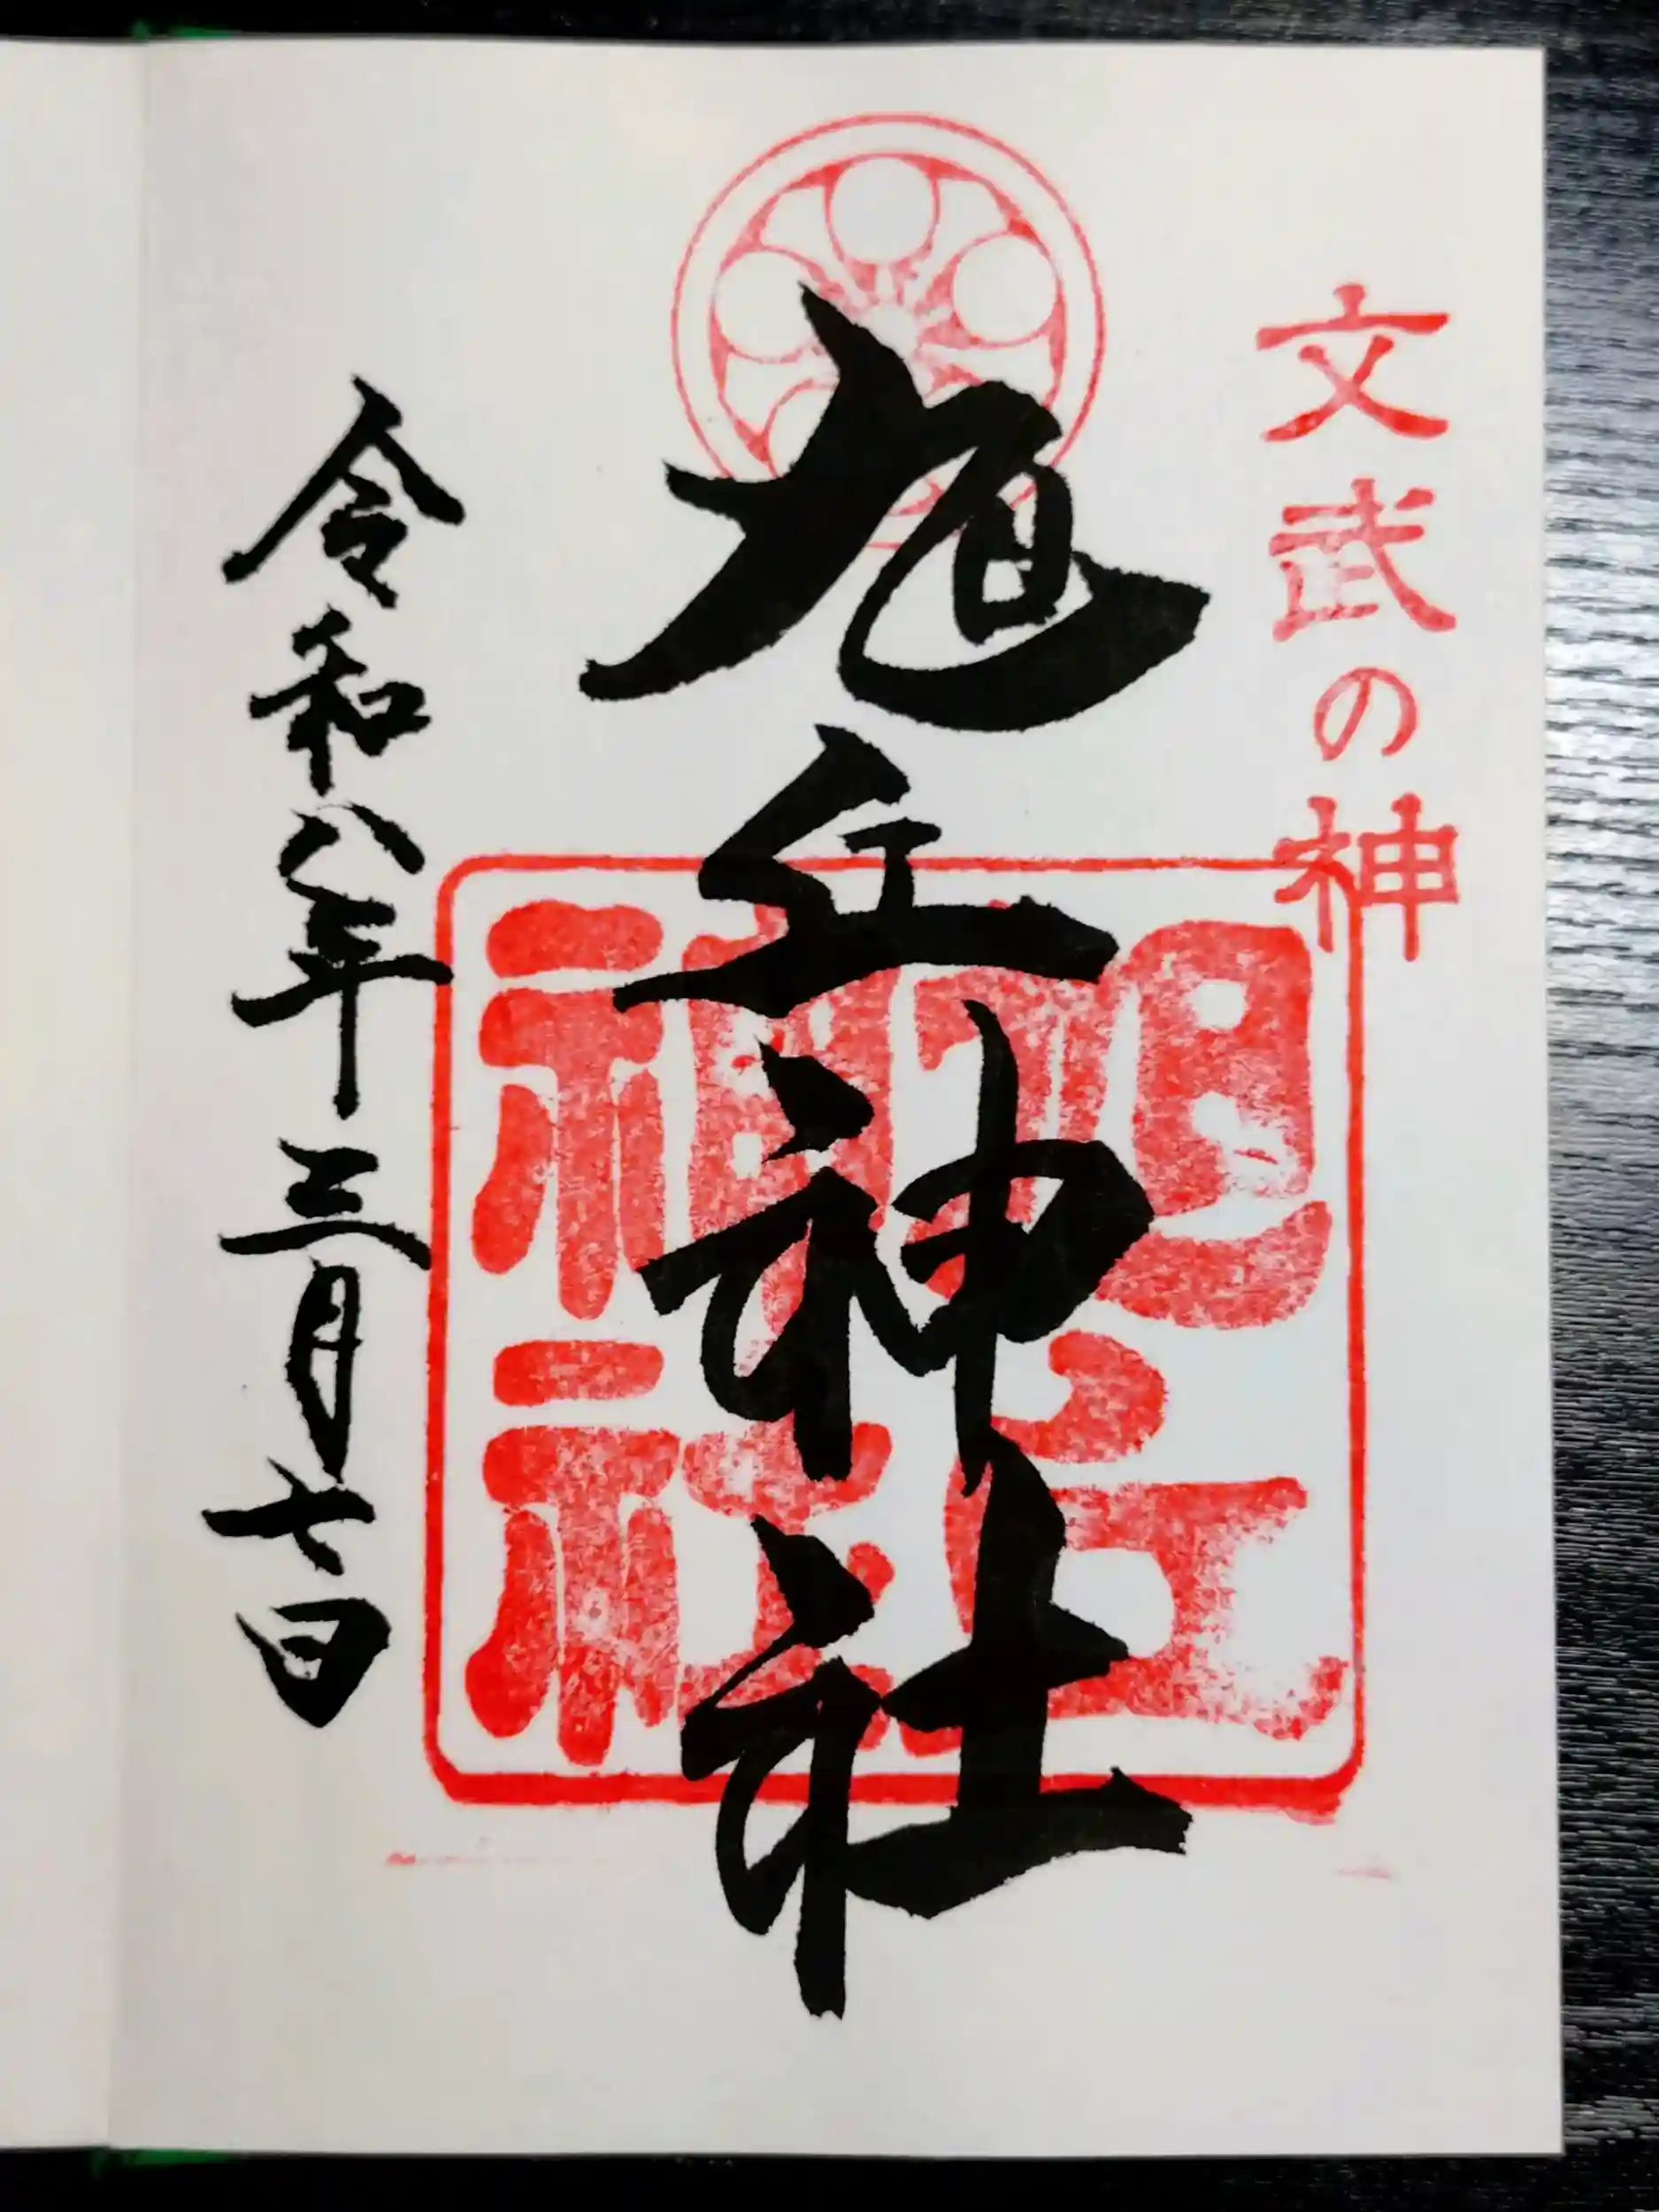 文武の神
旭丘神社
旭丘
神社
令和八年三月七日